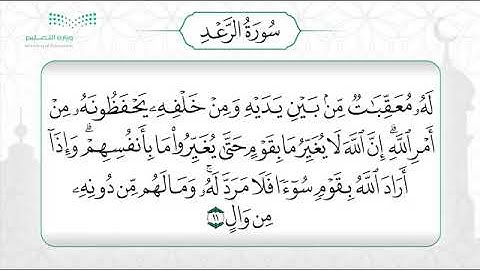 وزارة التعليم
Ministry of Education
سُورَةُ الرَّعْدِ
لَهُۥ مُعَقِّبَٰتٌ مِّنۢ بَيْنِ يَدَيْهِ وَمِنْ خَلْفِهِۦ يَحْفَظُونَهُۥ مِنْ
أَمْرِ ٱللَّهِۗ إِنَّ ٱللَّهَ لَا يُغَيِّرُ مَا بِقَوْمٍ حَتَّىٰ يُغَيِّرُوا۟ مَا بِأَنفُسِهِمْۗ وَإِذَآ
أَرَادَ ٱللَّهُ بِقَوْمٍ سُوٓءًا فَلَا مَرَدَّ لَهُۥۚ وَمَا لَهُم مِّن دُونِهِۦ
مِن وَالٍ ١١